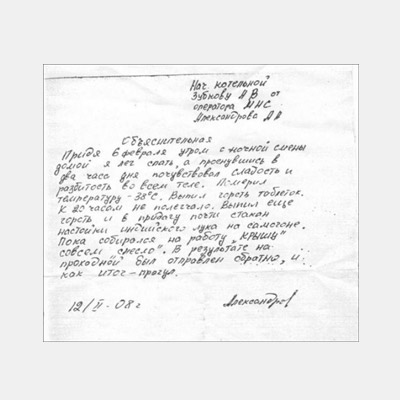 Нач. котельной
Зубкову А В от
оператора МНС
Александрова А А
Объяснительная
Придя 6 февраля утром с ночной смены
домой я лег спать, а проснувшись в
два часа дня почувствовал сладость и
разбитость во всем теле. Померил
температуру - 38°С. Выпил горсть таблеток.
К 20 часам не полегчало. Выпил еще
горсть и в придачу почти стакан
настойки индийского лука на самогоне.
Пока собирался на работу "крышу"
совсем снесло". В результате на
проходной был отправлен обратно, и
как итог - прогул.
12/II - 08 г Александров